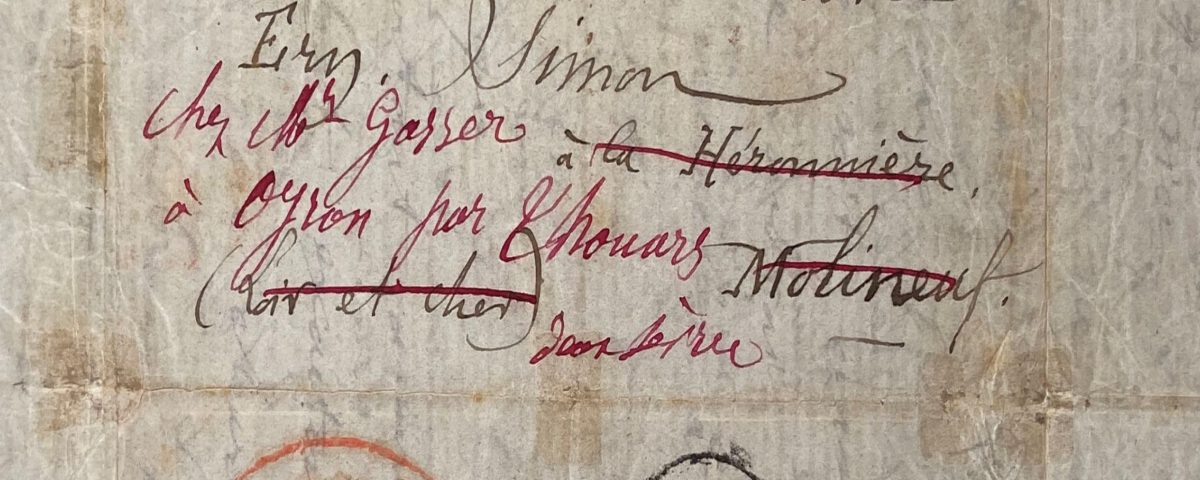 Ern. Simon
chez Mr Gasser
à la Héronnière.
à Oyron par Thouars
Molineuf.
(Loir et cher)
deux sèvre